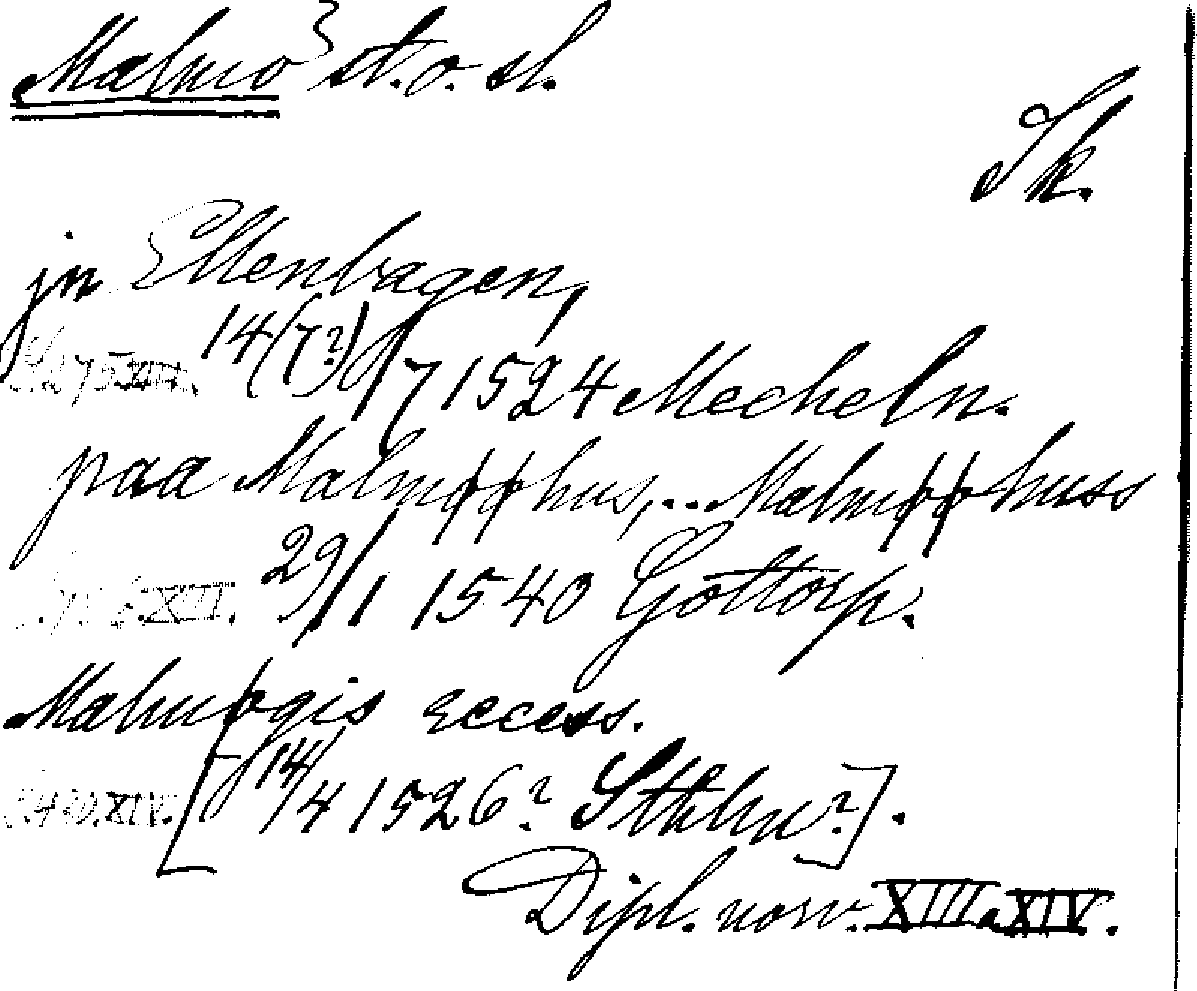 Malmö} st. o. sl.
Sk.
jn Ellenbagen,
14(7?)/7 1524 Mecheln.
paa Malmøøhus,.. Malmøøhuss
XII. 29/1 1540 Gottorp.
Malmøgis recess.
XIV. [14/4 1526? Sthlm?].
Dipl. norv. XIII a XIV.